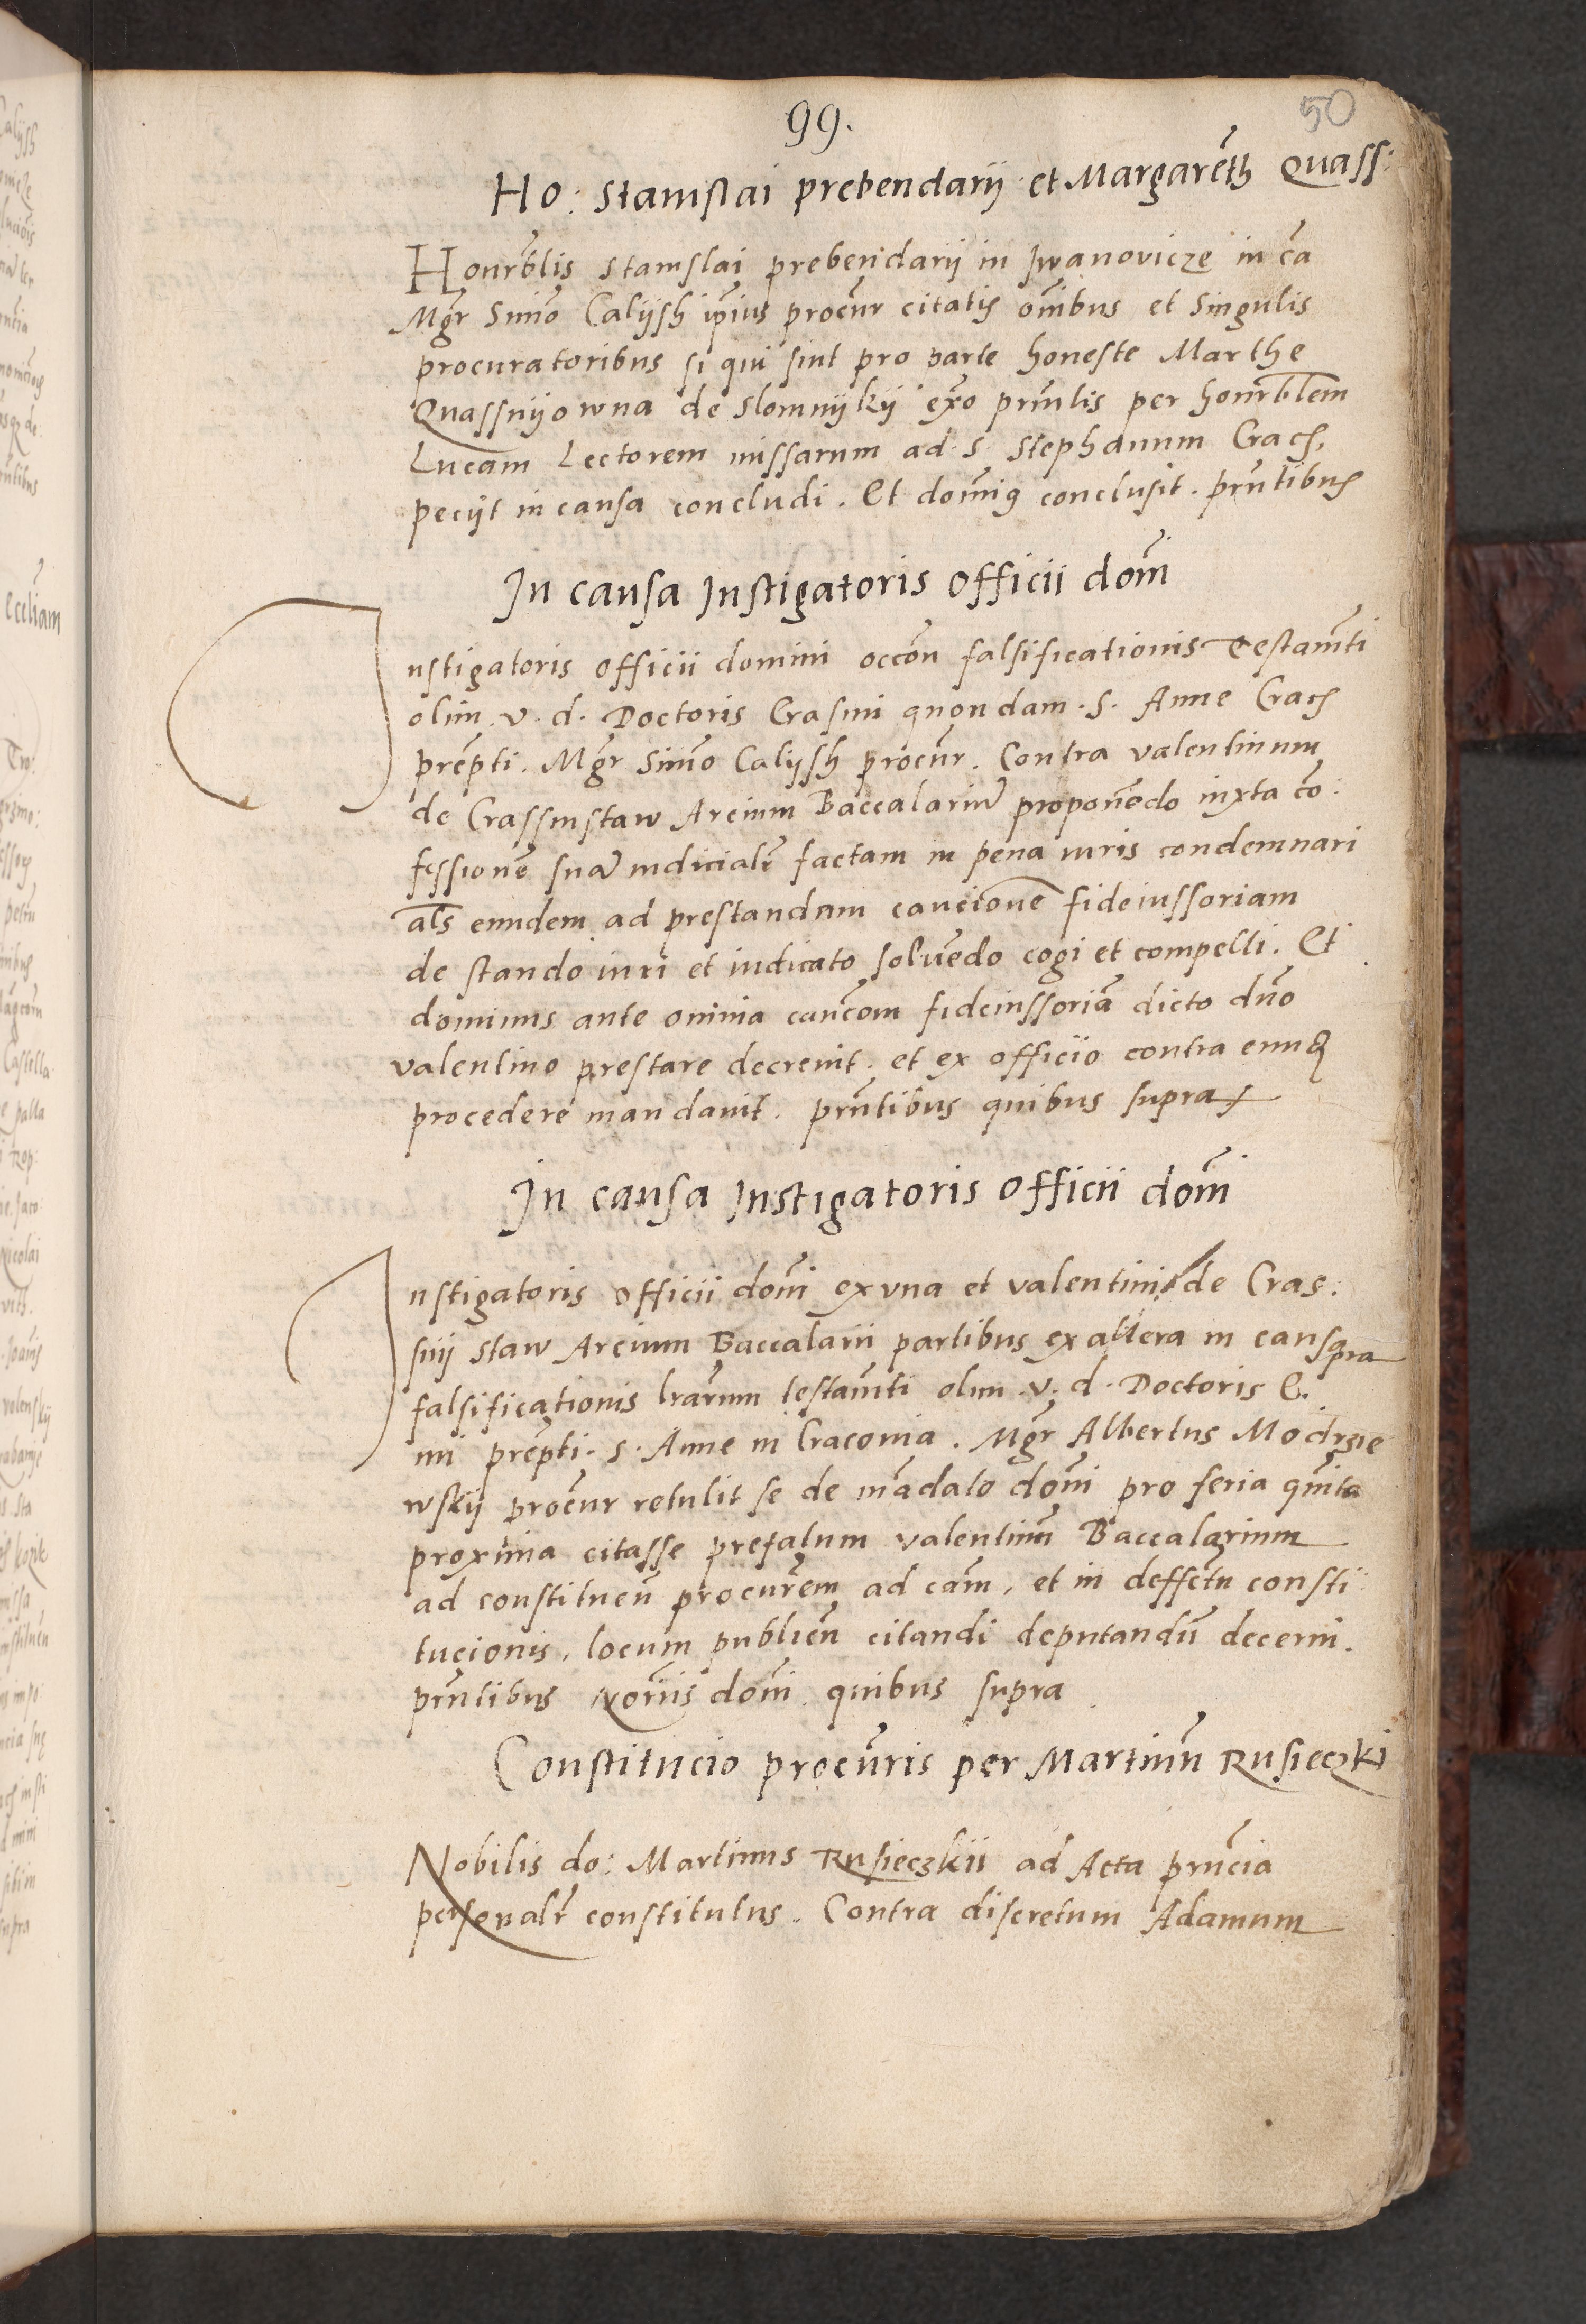 99.
50
Ho: Stanislai prebendarii et Margareth Quass:
Honrblis Stanislai prebendarii in Iwanovicze in ca
Mgr Simo Caliish ipius procur citatis omibus et Singulis
procuratoribus si qui sint pro parte honeste Marthe
Quassniiowna de Slomniikii exo prntis per honrblem
Lucam Lectorem missarum ad S Stephanum Crac
peciit in causa concludi. Et domig conclusit. prntibus
In causa Instigatoris officii domi
Instigatoris officii domini occon falsificationis Testamti
olim v. d. Doctoris Crasini quondam S. Anne Crac
prepti. Mgr Simo Caliish procur. Contra valentinum
de Crassnistaw Arcium Baccalariu proponedo iuxta co:
fessione sua iudicialr factam in pena iuris condemnari
als eundem ad prestandam caucione fideiussoriam
de stando iuri et iudicato soluedo cogi et compelli. Et
dominus ante omnia caucom fideiussoria dicto dno
valentino prestare decreuit. et ex officiio contra eundē
procedere mandauit. prntibus quibus supra
In causa Instigatoris officii domi
Instigatoris officii domi ex vna et valentini de Cras:
snij staw Arcium Baccalarii partibus ex altera in causa pra
falsificationis lrarum testamti olim v. d. Doctoris C.
ni prepti. S. Anne in Craconia. Mgr Albertus Modrzie
wskii procur retulit se de madato domi pro feria quita
proxima citasse prefatum valentinu Baccalarium
ad constituen procurem ad cam, et in deffectu consti
tucionis, locum publicu citandi deputandu decerni.
prntibus Noriis domi quibus supra
Constitucio procuris per Martinu Rusieczki
Nobilis do: Martinus Rusieczkii ad Acta prncia
personalr constitutus. Contra discretum Adamum